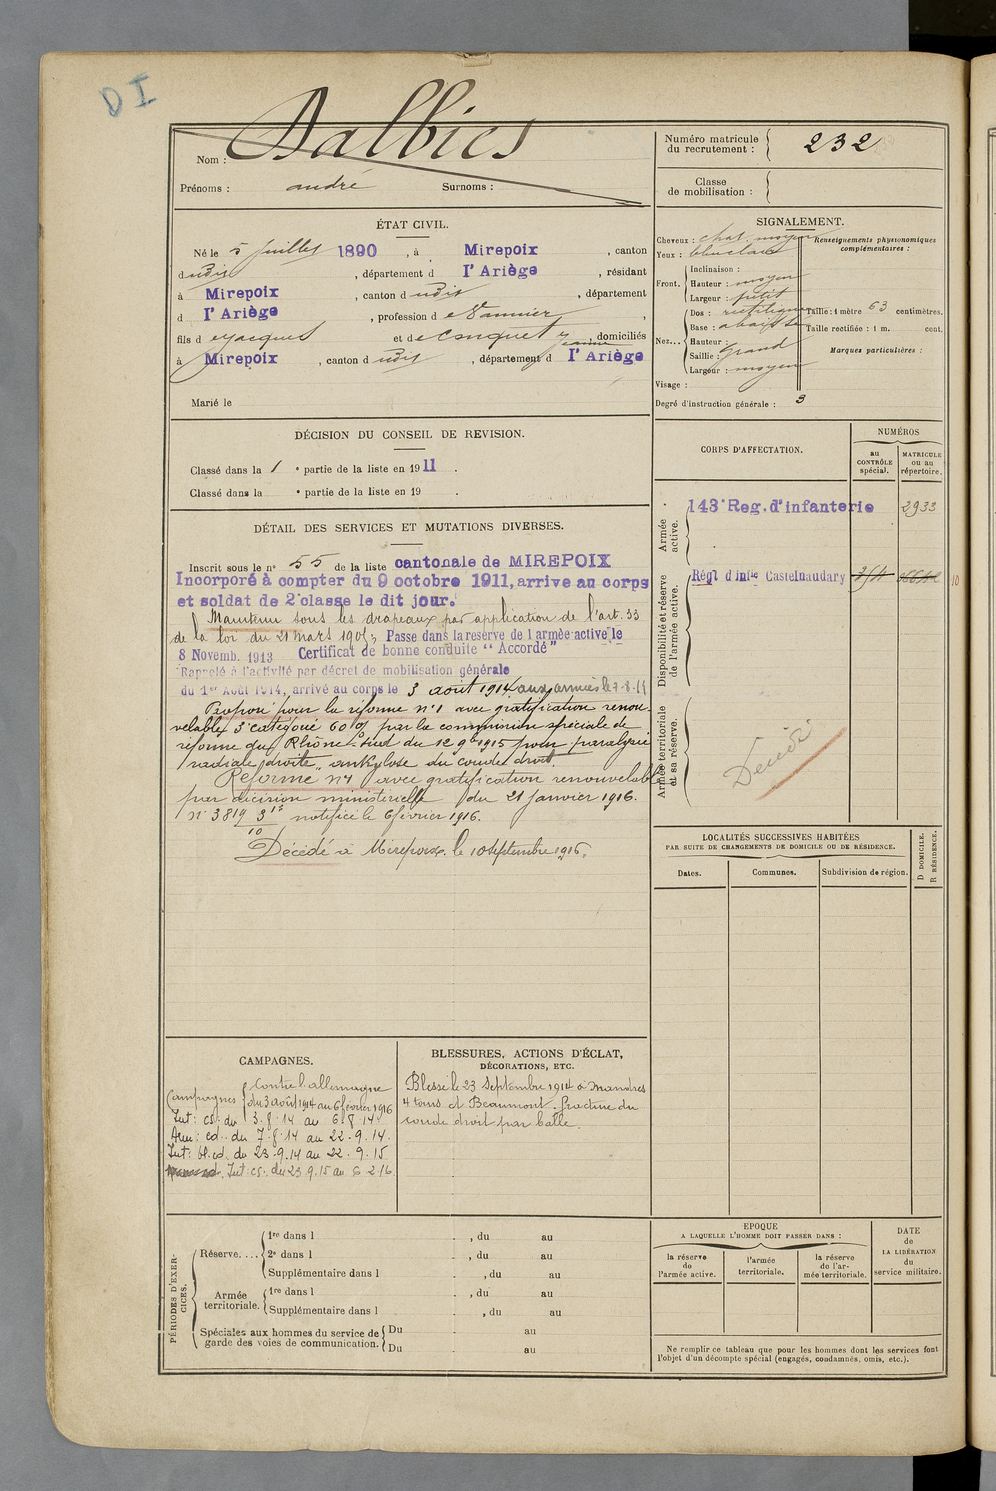 D I
Nom : Dalbies
Prénoms : andré Surnoms :
Numéro matricule du recrutement : 232
Classe de mobilisation :
ÉTAT CIVIL.
Né le 5 juillet 1890, à Mirepoix, canton
dudit, département d l'Ariège, résidant
à Mirepoix, canton dudit, département
d l'Ariège, profession de Vannier,
fils de Jacques et de Conquet Jeanne, domiciliés
à Mirepoix, canton dudit, département d l'Ariège
Marié le
SIGNALEMENT.
Cheveux : chat. moyen
Yeux : bleu clair
Front. Inclinaison :
Hauteur : moyen
Largeur : petit
Nez... Dos : rectiligne
Base : abaissée
Hauteur :
Saillie : grand
Largeur : moyen
Visage :
Degré d'instruction générale : 3
Renseignements physionomiques complémentaires :
Taille : 1 mètre 63 centimètres.
Taille rectifiée : 1 m. cent.
Marques particulières :
DÉCISION DU CONSEIL DE REVISION.
Classé dans la 1 e partie de la liste en 1911.
Classé dans la e partie de la liste en 19 .
DÉTAIL DES SERVICES ET MUTATIONS DIVERSES.
Inscrit sous le n° 55 de la liste cantonale de MIREPOIX
Incorporé à compter du 9 octobre 1911, arrive au corps
et soldat de 2e classe le dit jour.
Maintenu sous les drapeaux par application de l'art. 33
de la loi du 21 mars 1905, Passe dans la réserve de l'armée active le
8 Novemb. 1913 Certificat de bonne conduite "Accordé"
Rappelé à l'activité par décret de mobilisation générale
du 1er Août 1914, arrivé au corps le 3 août 1914, aux armées le 7-8-14
Proposé pour la réforme n° 1 avec gratification renou-
velable 3e catégorie 60% par la commission spéciale de
réforme du Rhône-Sud du 12 9bre 1915 pour "paralysie
radiale droite", ankylose du coude droit.
Réformé n° 1 avec gratification renouvelable
par décision ministérielle du 21 janvier 1916.
n° 3819 3/10 notifiée le 6 février 1916.
Décédé à Mirepoix le 10 septembre 1916.
CORPS D'AFFECTATION.
NUMÉROS
au CONTRÔLE spécial.
MATRICULE ou au répertoire.
Armée active.
143e Reg. d'infanterie 2933
Disponibilité et réserve de l'armée active.
Régt d'Infie Castelnaudary
10
Armée territoriale et sa réserve.
Décédé
LOCALITÉS SUCCESSIVES HABITÉES
PAR SUITE DE CHANGEMENTS DE DOMICILE OU DE RÉSIDENCE.
Dates. Communes. Subdivision de région.
D DOMICILE. R RÉSIDENCE.
CAMPAGNES.
Campagnes Contre l'allemagne
du 3 août 1914 au 6 février 1916
Int : cs. du 3.8.14 au 6.8.14.
Arm : cd. du 7.8.14 au 22.9.14.
Int : bl. cd. du 23.9.14 au 22.9.15
Int : cs. du 23.9.15 au 6 2 16
BLESSURES, ACTIONS D'ÉCLAT,
DÉCORATIONS, ETC.
Blessé le 23 Septembre 1914 à Mandres
4 tours et Beaumont. fracture du
coude droit par balle.
PÉRIODES D'EXERCICES.
Réserve.... 1re dans l , du au
2e dans l , du au
Supplémentaire dans l , du au
Armée territoriale. 1re dans l , du au
Supplémentaire dans l , du au
Spéciales aux hommes du service de garde des voies de communication. Du au
Du au
EPOQUE
A LAQUELLE L'HOMME DOIT PASSER DANS :
la réserve de l'armée active.
l'armée territoriale.
la réserve de l'armée territoriale.
DATE de LA LIBÉRATION du service militaire.
Ne remplir ce tableau que pour les hommes dont les services font
l'objet d'un décompte spécial (engagés, condamnés, omis, etc.).